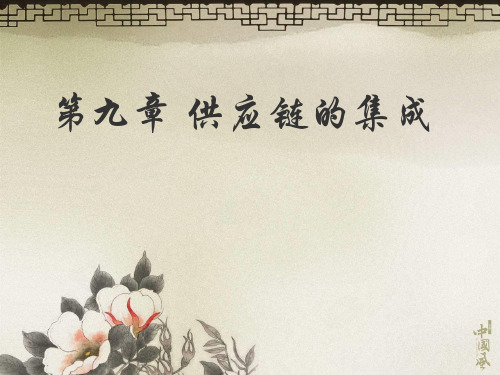 第九章 供应链的集成
中国风